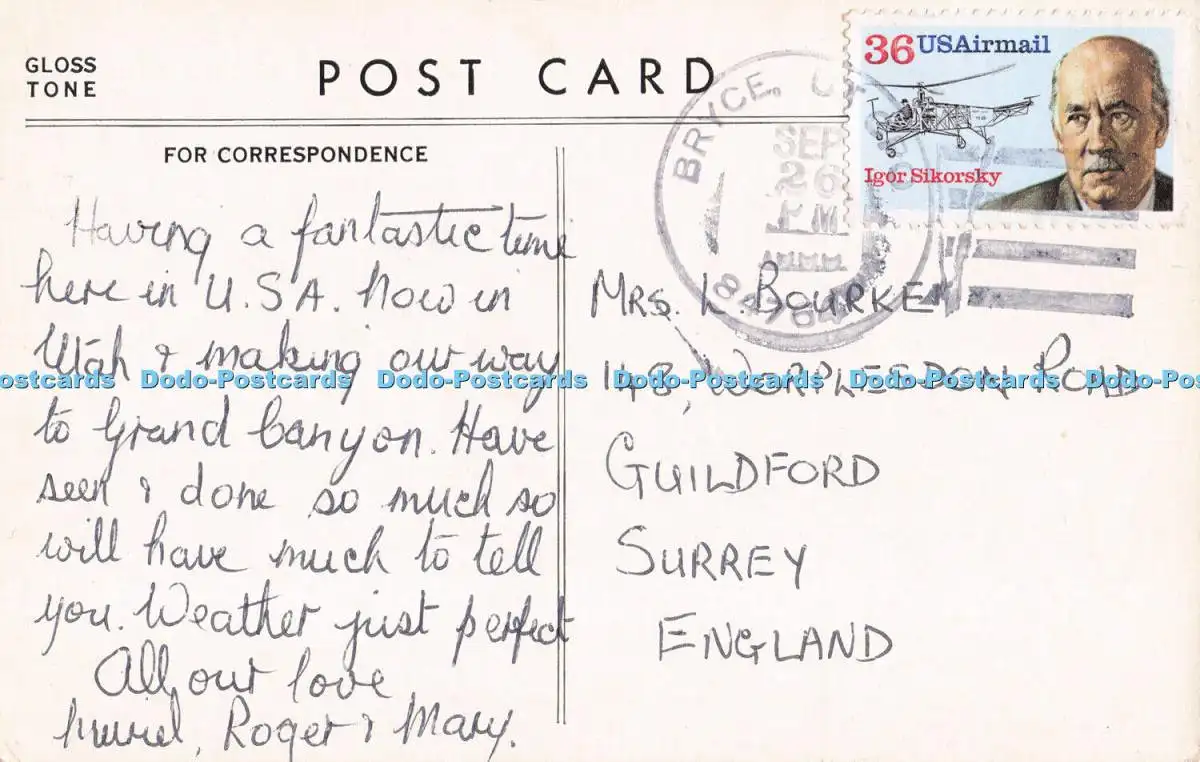 GLOSS
TONE
POST CARD
FOR CORRESPONDENCE
36 USAirmail
Igor Sikorsky
BRYCE,
SEP
26
PM
Having a fantastic time
here in U.S.A. Now in
Utah & making our way
to Grand Canyon. Have
seen & done so much so
will have much to tell
you. Weather just perfect
All our love
Muriel, Roger & Mary.
MRS. L. BOURKE
148, WORPLESDON ROAD
GUILDFORD
SURREY
ENGLAND
ostcards Dodo-Postcards Dodo-Postcards Dodo-Postcards Dodo-Postcards Dodo-Pos